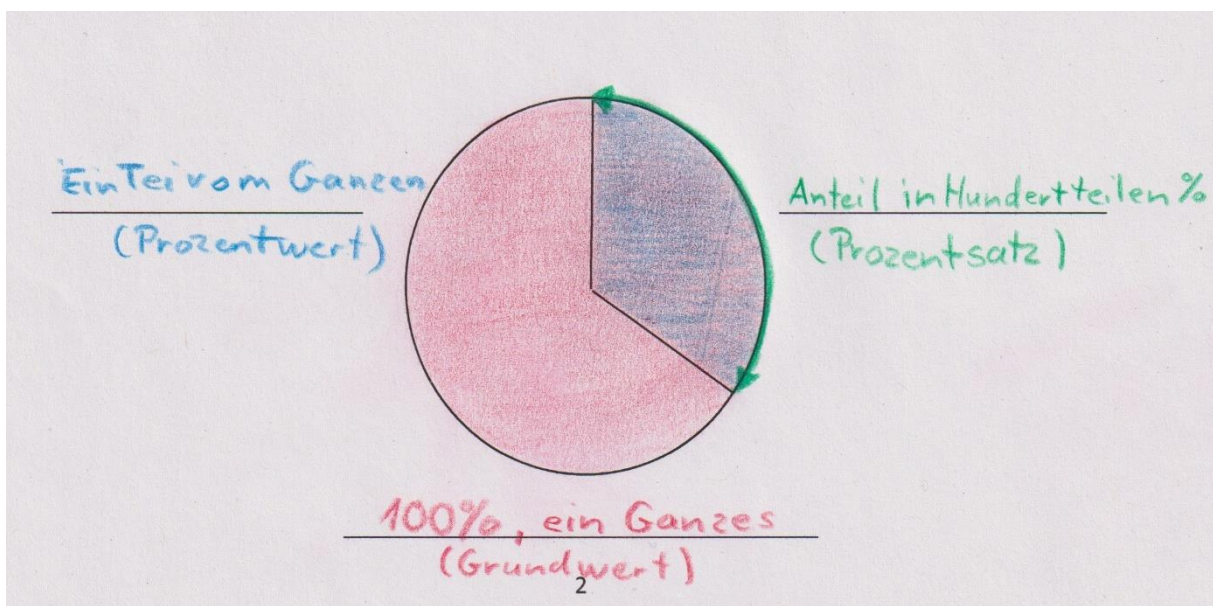 Ein Tei vom Ganzen
(Prozentwert)
Anteil in Hundertteilen %
(Prozentsatz)
100%, ein Ganzes
(Grundwert)
2